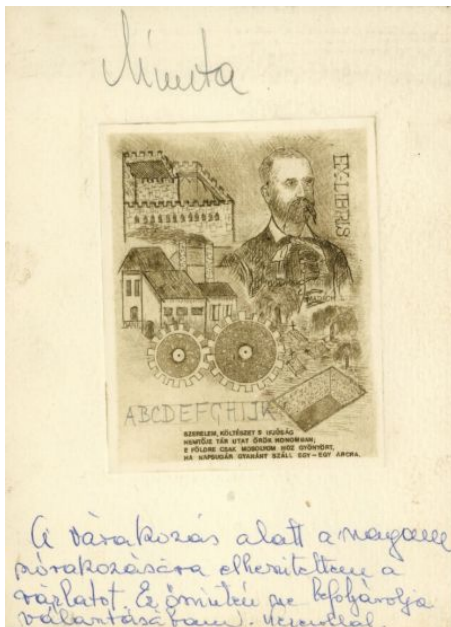 Minta
EX-LIBRIS
ABCDEFGHIJK
SZERELEM, KÖLTÉSZET S IFJÚSÁG
NEMTŐJE TÁR UTAT ÖRÖK HONOMHAN;
E FÖLDRE CSAK MOSOLYOM HOZ GYÖNYÖRT,
HA NAPSUGÁR GYANÁNT SZÁLL EGY-EGY ARCRA.
A várakozás alatt a magam
szórakozására elkészítettem a
vázlatot. Ez önöket ne befolyásolja
választásában.